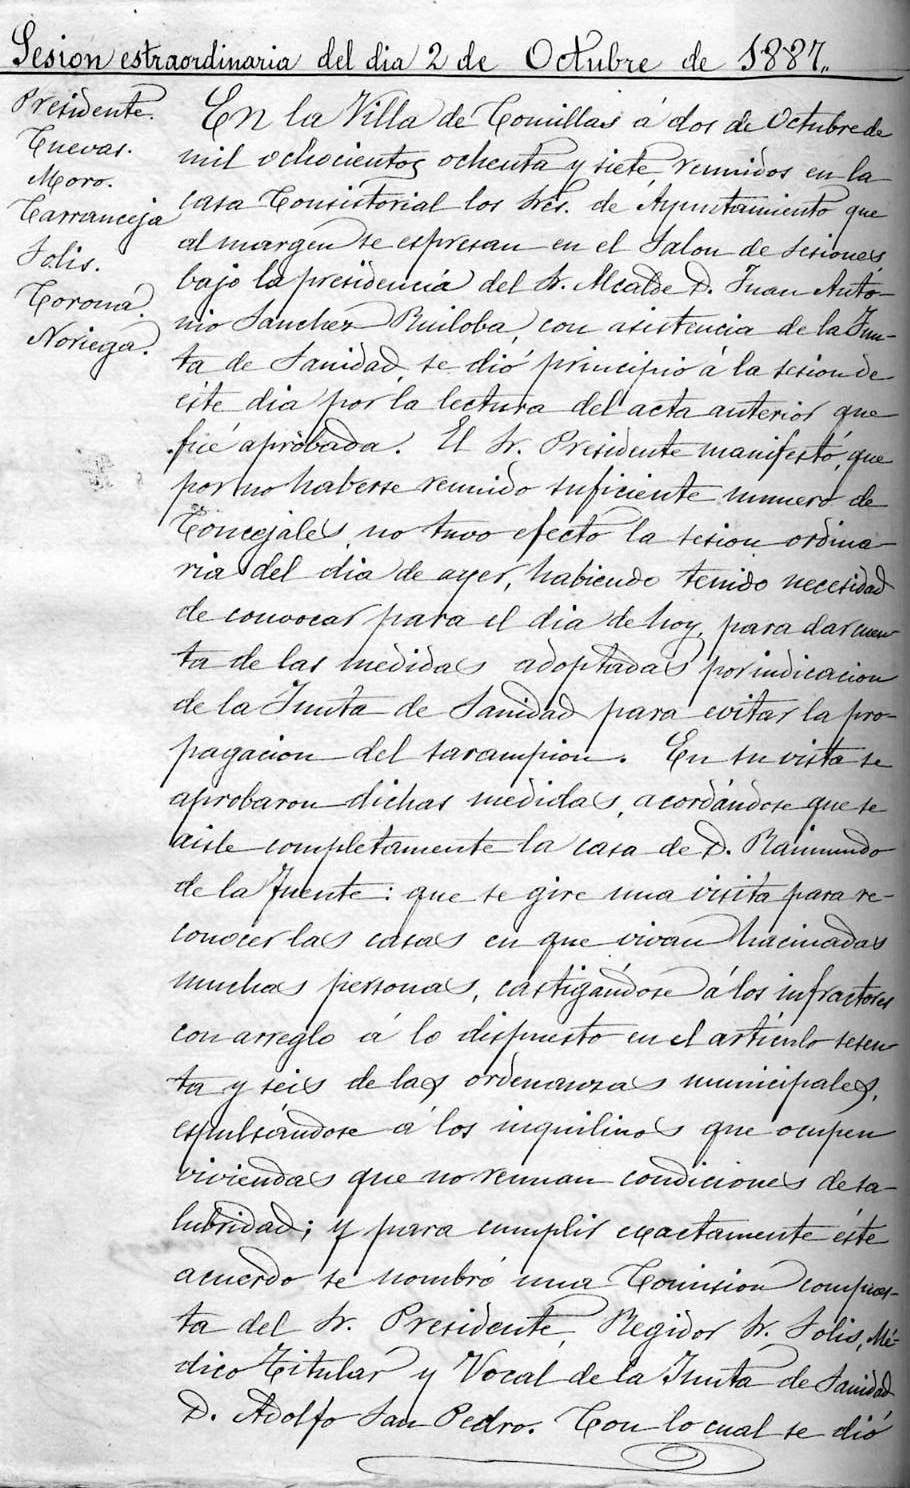 Sesion estraordinaria del dia 2 de Octubre de 1887,,
Presidente.
Cuevas.
Moro.
Carranceja
Solis.
Coroná.
Noriega.
En la Villa de Comillas á dos de Octubre de
mil ochocientos ochenta y siete, reunidos en la
casa Consistorial los Sres. de Ayuntamiento que
al margen se espresan en el Salon de sesiones,
bajo la presidencia del Sr. Alcalde D. Juan Anto-
nio Sanchez Ruiloba, con asistencia de la Jun-
ta de Sanidad, se dió principio á la sesion de
este dia por la lectura del acta anterior que
fué aprobada. El Sr. Presidente manifestó, que
por no haberse reunido suficiente numero de
Concejales, no tuvo efecto la sesion ordina-
ria del dia de ayer, habiendo tenido necesidad
de convocar para el dia de hoy, para dar cuen-
ta de las medidas adoptadas por indicacion
de la Junta de Sanidad para evitar la pro-
pagacion del sarampion. En su vista se
aprobaron dichas medidas, acordándose que se
aisle completamente la casa de D. Raimundo
de la Fuente: que se gire una visita para re-
conocer las casas en que vivan hacinadas
muchas personas, castigándose á los infractores
con arreglo á lo dispuesto en el artículo sesen-
ta y seis de las ordenanzas municipales,
espulsándose á los inquilinos que ocupen
viviendas que no reunan condiciones de sa-
lubridad; y para cumplir exactamente éste
acuerdo se nombró una Comision compues-
ta del Sr. Presidente, Regidor Sr. Solis, Mé-
dico Titular y Vocal de la Junta de Sanidad
D. Adolfo San Pedro. Con lo cual se dió